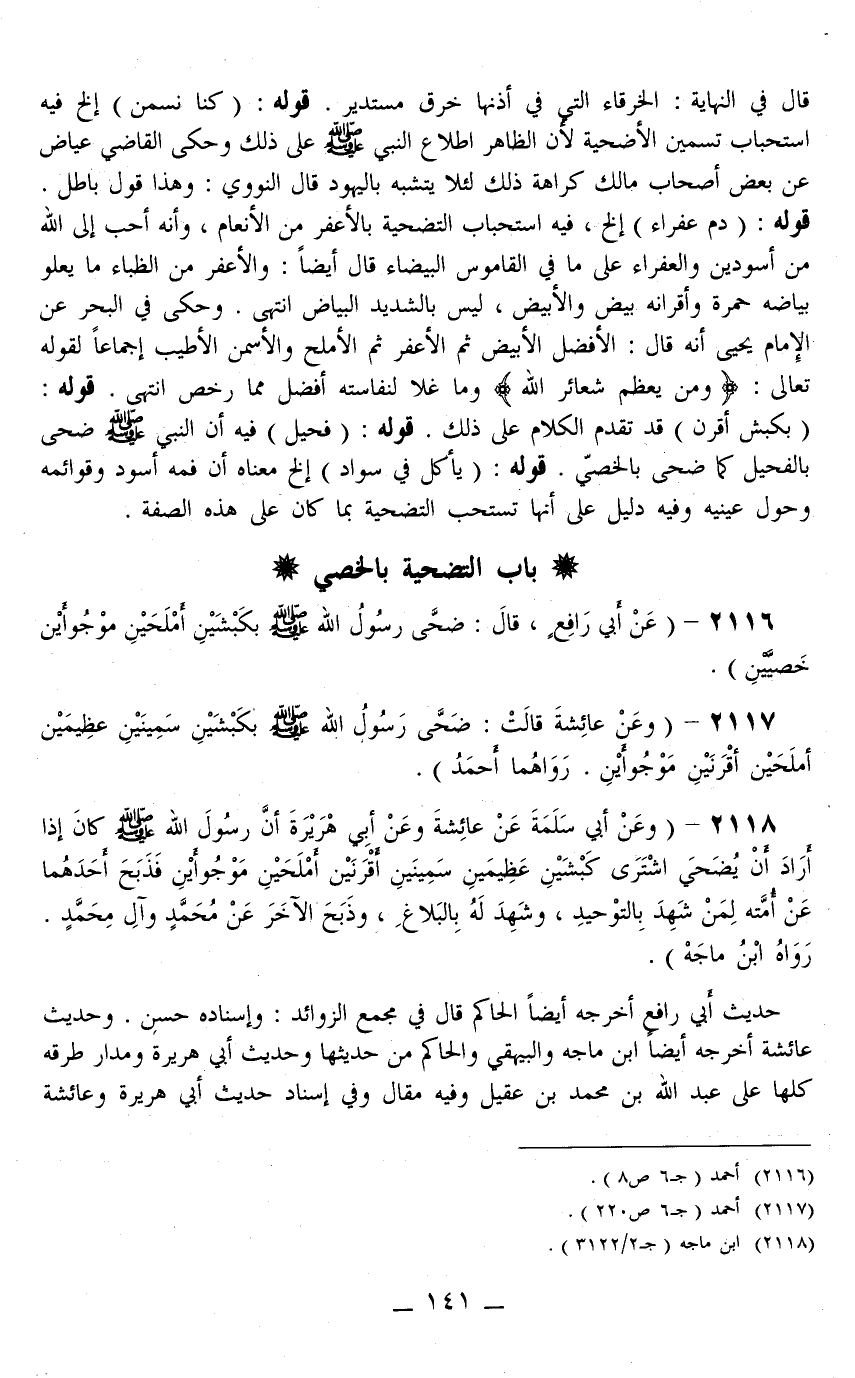 قال في النهاية : الخرقاء التي في أذنها خرق مستدير . قوله : ( كنا نسمن ) إلخ فيه
استحباب تسمين الأضحية لأن الظاهر اطلاع النبي ﷺ على ذلك وحكى القاضي عياض
عن بعض أصحاب مالك كراهة ذلك لئلا يتشبه باليهود قال النووي : وهذا قول باطل .
قوله : ( دم عفراء ) إلخ ، فيه استحباب التضحية بالأعفر من الأنعام ، وأنه أحب إلى الله
من أسودين والعفراء على ما في القاموس البيضاء قال أيضاً : والأعفر من الظباء ما يعلو
بياضه حمرة وأقرانه بيض والأبيض ، ليس بالشديد البياض انتهى . وحكى في البحر عن
الإمام يحيى أنه قال : الأفضل الأبيض ثم الأعفر ثم الأملح والأسمن الأطيب إجماعاً لقوله
تعالى : ﴿ ومن يعظم شعائر الله ﴾ وما غلا لنفاسته أفضل مما رخص انتهى . قوله :
( بكبش أقرن ) قد تقدم الكلام على ذلك . قوله : ( فحيل ) فيه أن النبي ﷺ ضحى
بالفحيل كما ضحى بالخصيّ . قوله : ( يأكل في سواد ) إلخ معناه أن فمه أسود وقوائمه
وحول عينيه وفيه دليل على أنها تستحب التضحية بما كان على هذه الصفة .
✷ باب التضحية بالخصي ✷
٢١١٦ – ( عَنْ أَبي رَافِعٍ ، قالَ : ضحَّى رسُولُ الله ﷺ بكَبْشَيْنِ أَمْلَحَيْنِ موْجُوأَيْن
خَصيَّيْنِ ) .
٢١١٧ – ( وعَنْ عائِشةَ قالَتْ : ضَحَّى رَسُولُ الله ﷺ بكَبْشَيْنِ سَمِينَيْنِ عظِيمَيْن
أملَحَيْن أقْرَنَيْنِ مَوْجُوأَيْنِ . رَوَاهُما أَحمَدُ ) .
٢١١٨ – ( وعَنْ أبي سَلَمَةَ عَنْ عائِشةَ وعَنْ أَبِي هْرَيْرَةَ أنَّ رسُولَ الله ﷺ كانَ إذا
أَرَادَ أَنْ يُضَحيَ اشْتَرَى كَبْشَيْنِ عَظِيمَينِ سَمِينَينِ أَقْرَنَيْن أَمْلَحَيْنِ مَوْجُوأَيْنِ فَذَبَحَ أَحَدَهُما
عَنْ أُمَّته لِمَنْ شَهِدَ بالتوْحيدِ ، وشَهِدَ لَهُ بِالبَلاغِ ، وذَبَحَ الآخَرَ عَنْ مُحَمَّدٍ وآلِ مِحَمَّدٍ .
رَوَاهُ ابْنُ ماجَهْ ) .
حديث أَبي رافع أخرجه أيضاً الحاكم قال في مجمع الزوائد : وإسناده حسن . وحديث
عائشة أخرجه أيضاً ابن ماجه والبيهقي والحاكم من حديثها وحديث أبي هريرة ومدار طرقه
كلها على عبد الله بن محمد بن عقيل وفيه مقال وفي إسناد حديث أبي هريرة وعائشة
(٢١١٦) أحمد ( جـ٦ ص٨ ) .
(٢١١٧) أحمد ( جـ٦ ص٢٢٠ ) .
(٢١١٨) ابن ماجه ( جـ٣١٢٢/٢ ) .
– ١٤١ –